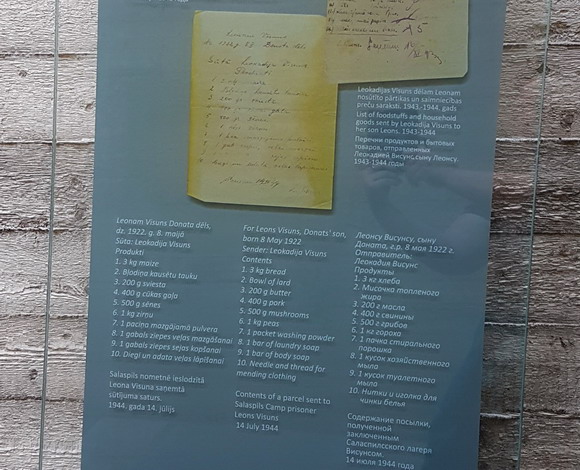 Leokādijas Visuns dēlam Leonam
nosūtīto pārtikas un saimniecības
preču saraksti. 1943.-1944. gads
List of foodstuffs and household
goods sent by Leokadija Visuns to
her son Leons. 1943-1944
Перечни продуктов и бытовых
товаров, отправленных
Леокадией Висунс сыну Леонсу.
1943-1944 годы
Leonam Visuns Donata dēls,
dz. 1922. g. 8. maijā
Sūta: Leokadija Visuns
Produkti
1. 3 kg maize
2. Bļodiņa kausētu tauku
3. 200 g sviesta
4. 400 g cūkas gaļa
5. 500 g sēnes
6. 1 kg zirņu
7. 1 paciņa mazgājamā pulvera
8. 1 gabals ziepes veļas mazgāšanai
9. 1 gabals ziepes sejas kopšanai
10. Diegi un adata veļas lāpīšanai
Salaspils nometnē ieslodzītā
Leona Visuna saņemtā
sūtījuma saturs.
1944. gada 14. jūlijs
For Leons Visuns, Donats' son,
born 8 May 1922
Sender: Leokadija Visuns
Contents
1. 3 kg bread
2. Bowl of lard
3. 200 g butter
4. 400 g pork
5. 500 g mushrooms
6. 1 kg peas
7. 1 packet washing powder
8. 1 bar of laundry soap
9. 1 bar of body soap
10. Needle and thread for
mending clothing
Contents of a parcel sent to
Salaspils Camp prisoner
Leons Visuns
14 July 1944
Леонсу Висунсу, сыну
Доната, г.р. 8 мая 1922 г.
Отправитель:
Леокадия Висунс
Продукты
1. 3 кг хлеба
2. Мисочка топленого
жира
3. 200 г масла
4. 400 г свинины
5. 500 г грибов
6. 1 кг гороха
7. 1 пачка стирального
порошка
8. 1 кусок хозяйственного
мыла
9. 1 кусок туалетного
мыла
10. Нитки и иголка для
чинки белья
Содержание посылки,
полученной
заключенным
Саласпилсского лагеря
Висунсом.
14 июля 1944 года